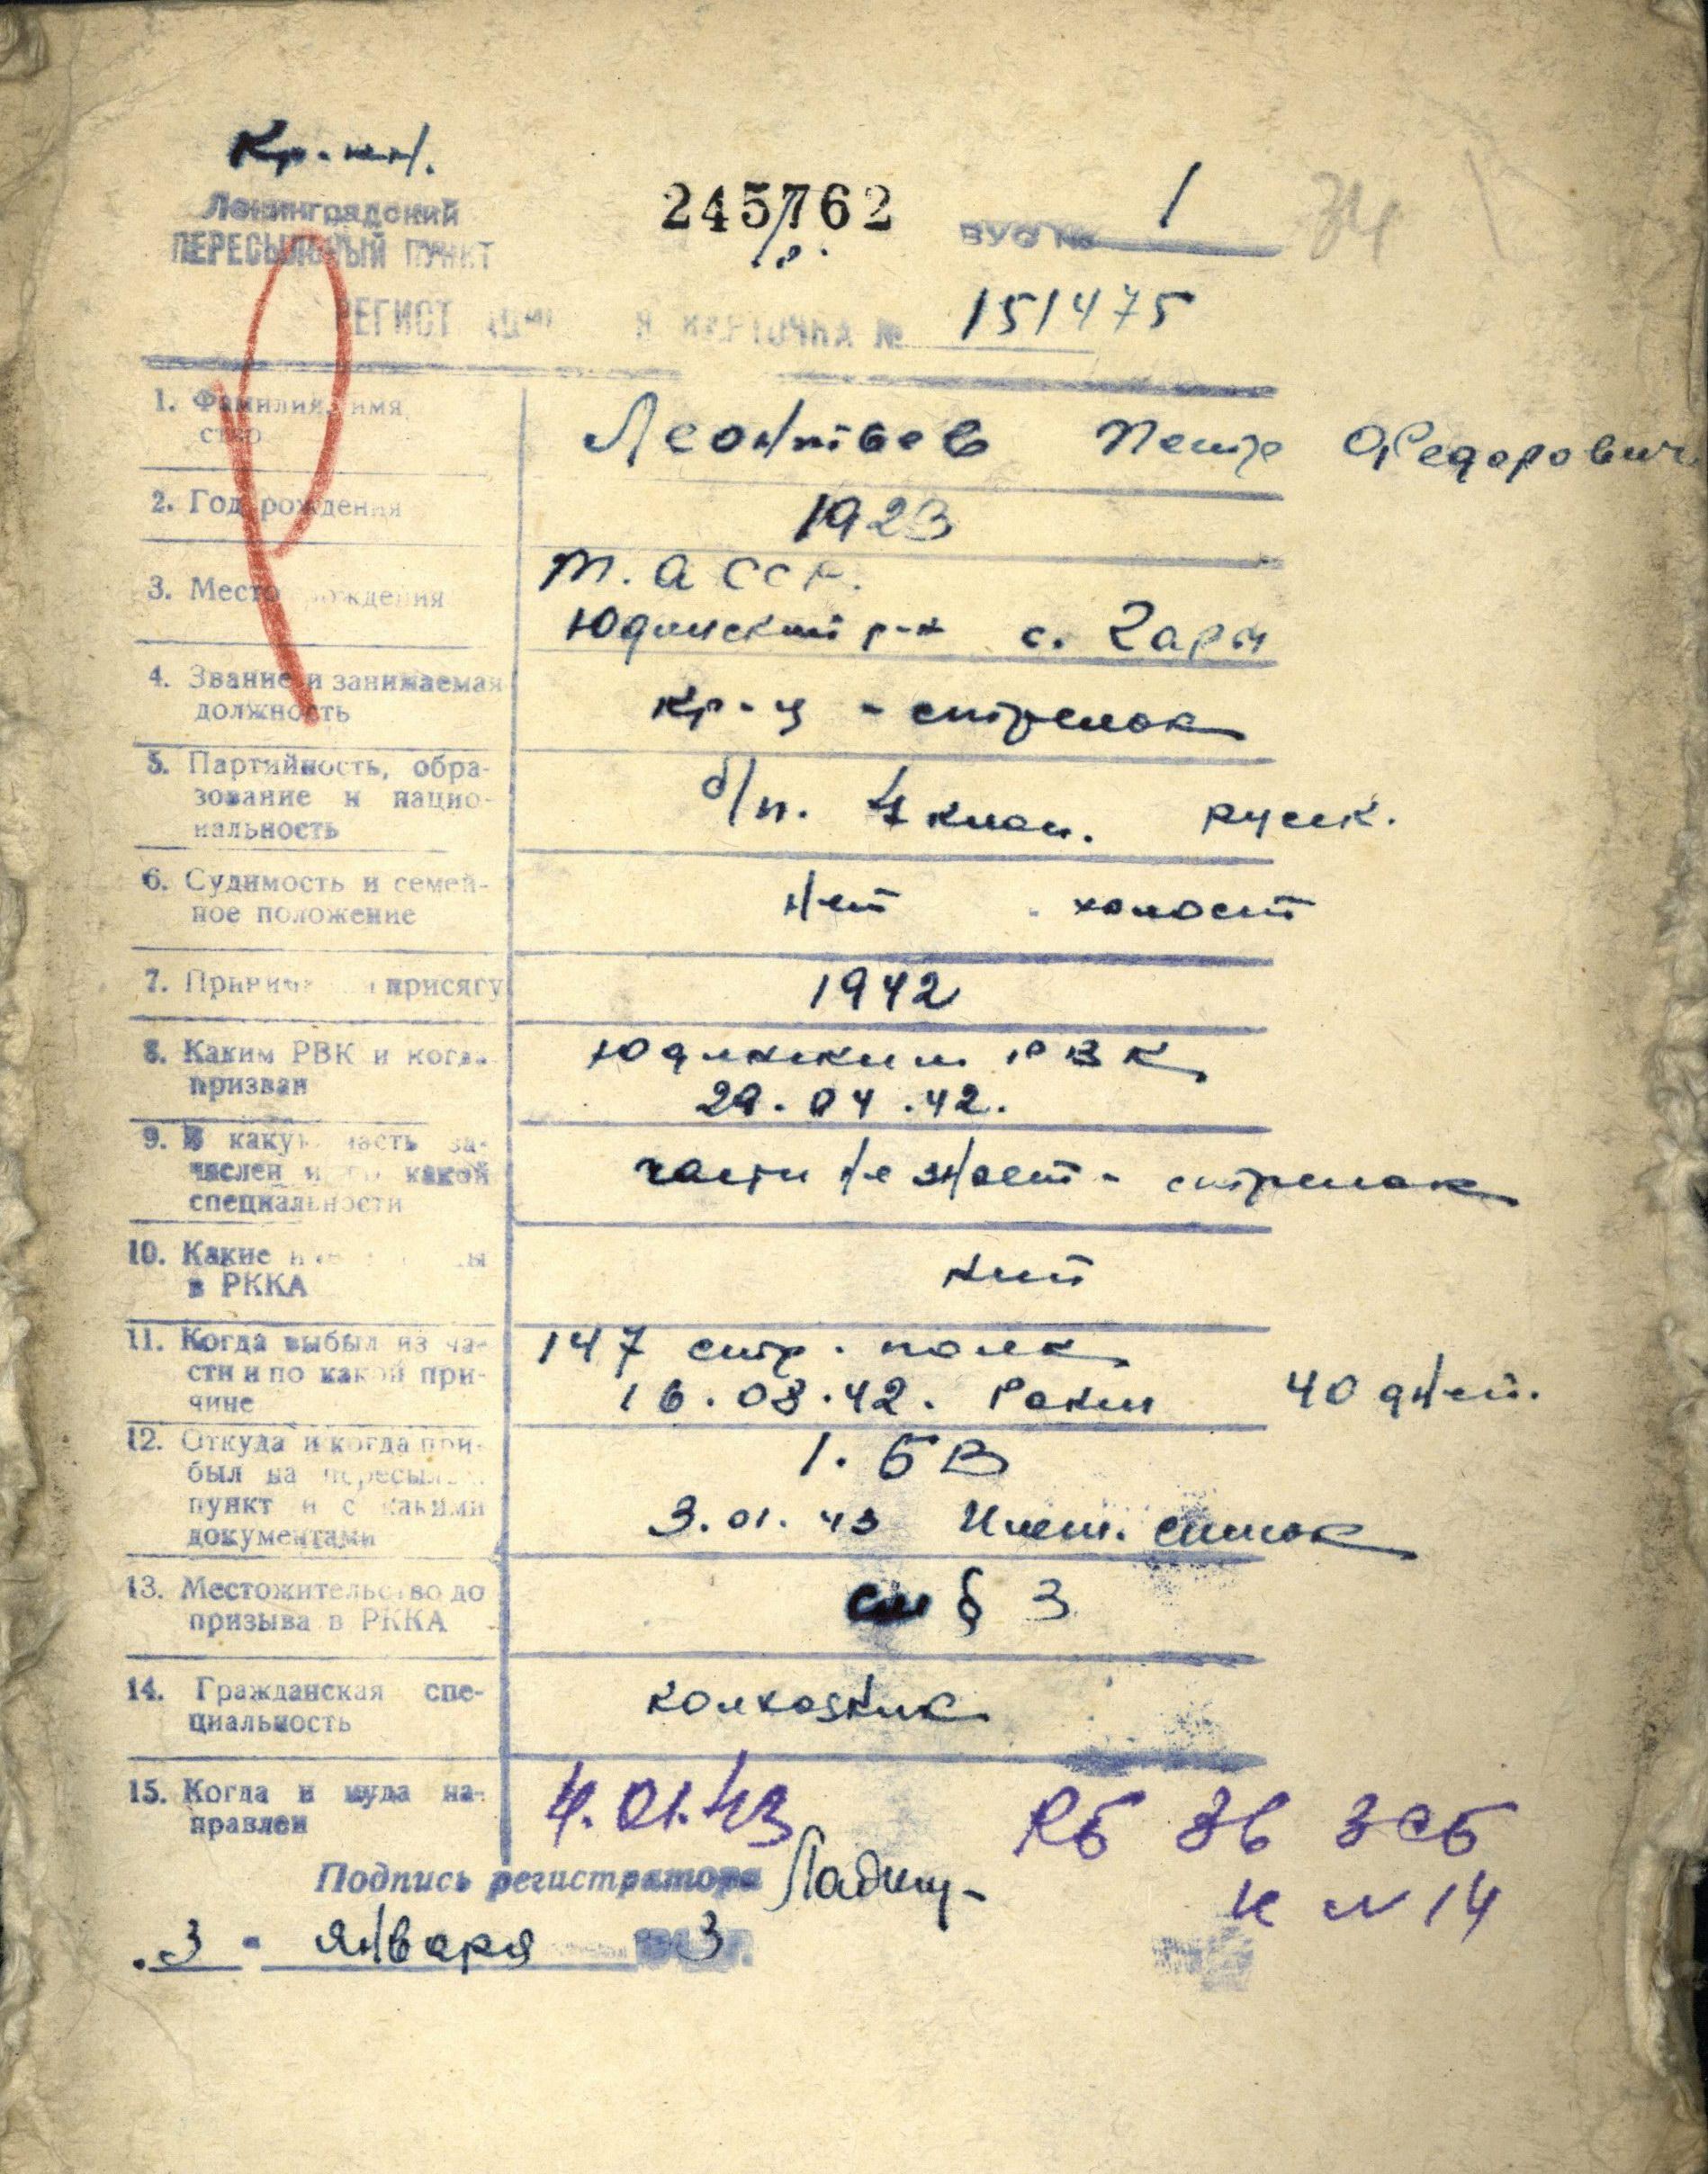 Кр-ец.
Ленинградский
ПЕРЕСЫЛЬНЫЙ ПУНКТ
245762
ВУС № 1
34
РЕГИСТРАЦИОННАЯ КАРТОЧКА № 151475
1. Фамилия, имя, ство
Леонтьев Петр Федорович
2. Год рождения
1923
3. Место рождения
Т. А ССР.
Юдинский р-н с. Гари
4. Звание и занимаемая
должность
Кр-ц - стрелок
5. Партийность, обра-
зование и нацио-
нальность
б/п. 4 клас. русск.
6. Судимость и семей-
ное положение
Нет холост
7. Принимал присягу
1942
8. Каким РВК и когда
призван
Юдинским РВК
29.04.42.
9. В какую часть за-
числен и по какой
специальности
части не знает - стрелок
10. Какие
в РККА
нет
11. Когда выбыл из ча-
сти и по какой при-
чине
147 стр. полк
16.08.42. Ранен 40 дней.
12. Откуда и когда при-
был на пересыльный
пункт и с какими
документами
1. БВ
3.01.43 Имен. список
13. Местожительство до
призыва в РККА
см § 3
14. Гражданская спе-
циальность
колхозник
15. Когда и куда на-
правлен
4.01.43 РБ 36 ЗСБ
к № 14
Подпись регистратора
3 - января 3